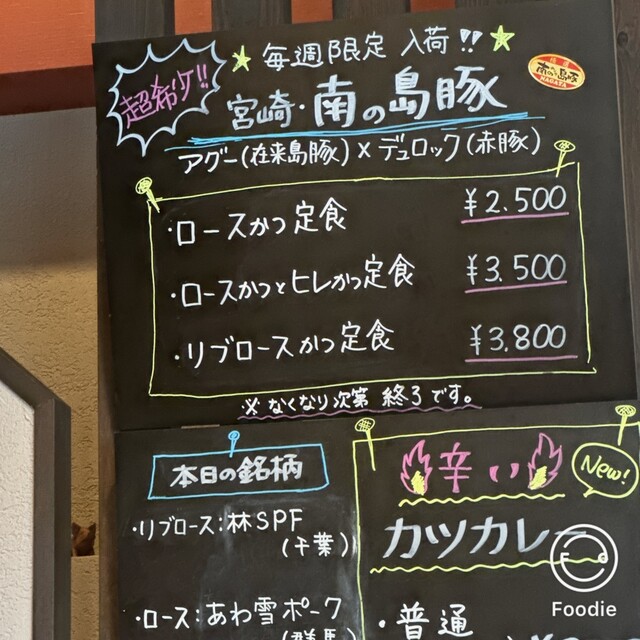 超希少!!
毎週限定 入荷!!
南の島豚
NAGATA
宮崎・南の島豚
アグー(在来島豚)×デュロック(赤豚)
・ロースかつ定食 ¥2.500
・ロースかつとヒレかつ定食 ¥3,500
・リブロースかつ定食 ¥3,800
※なくなり次第 終了です。
本日の銘柄
・リブロース:林SPF
(千葉)
・ロース:あわ雪ポーク
(群馬)
辛い
New!
カツカレー
・普通
Foodie